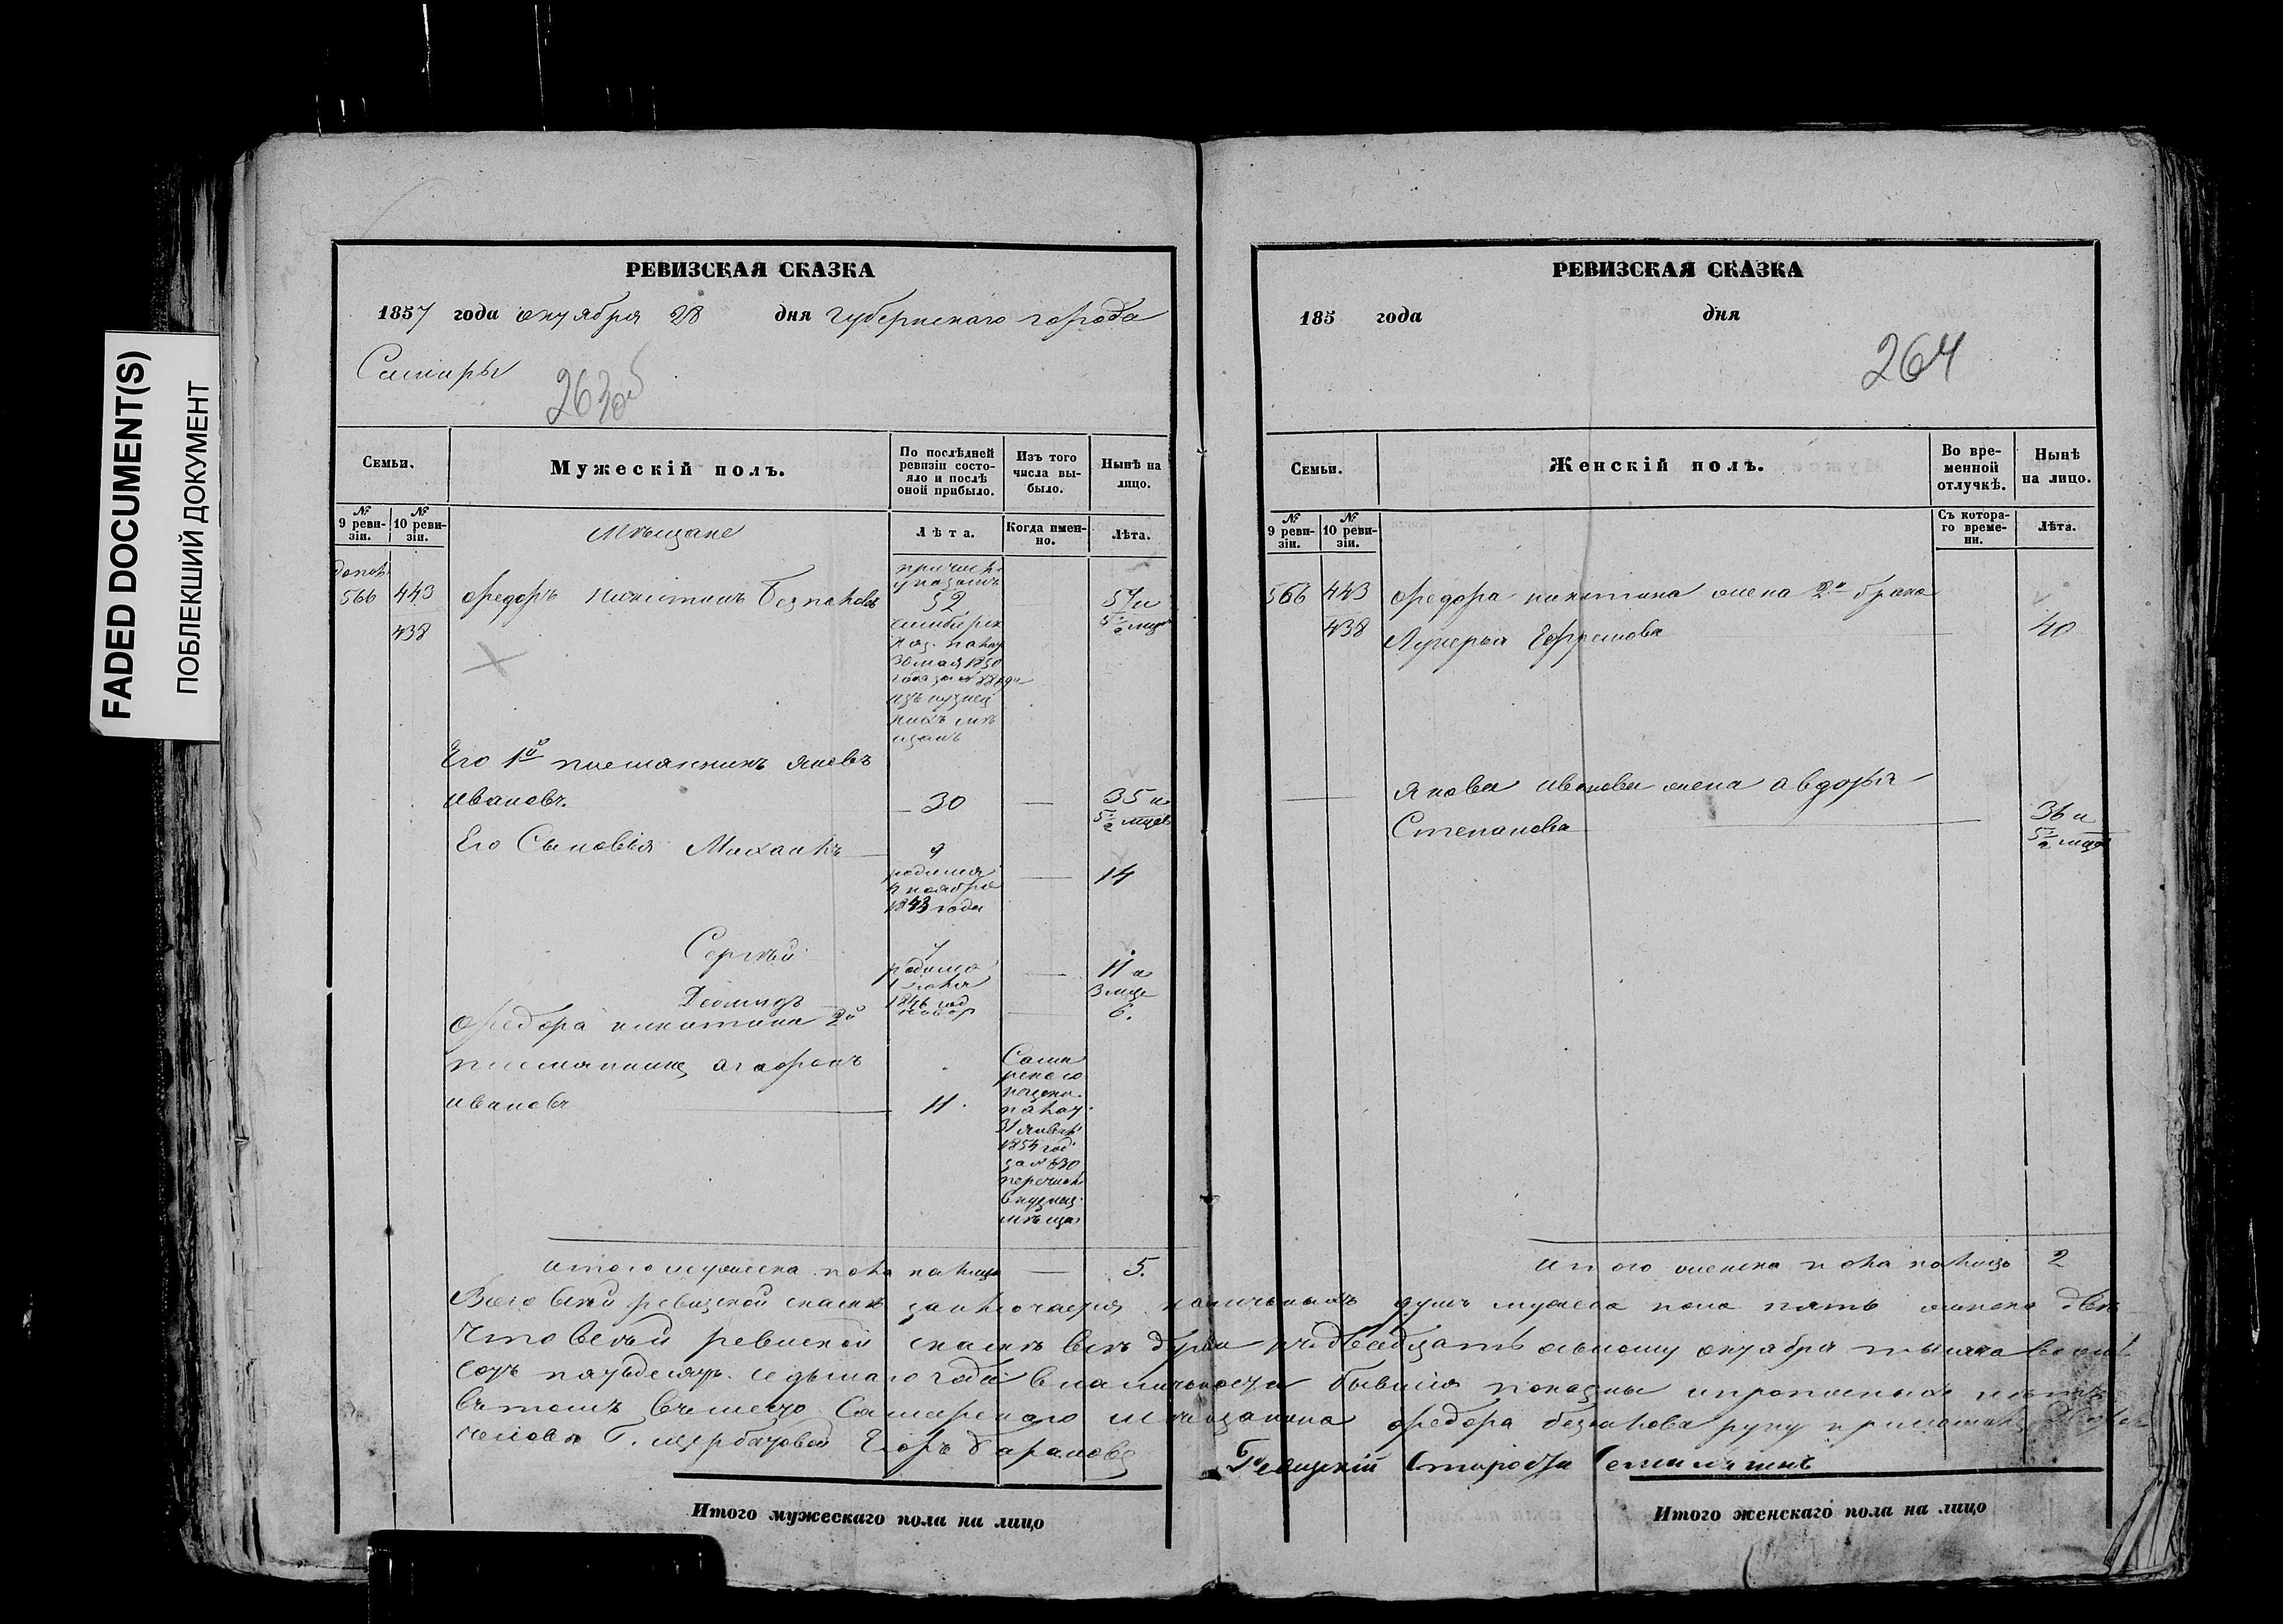 FADED DOCUMENT(S)
ПОБЛЕКШИЙ ДОКУМЕНТ
РЕВИЗСКАЯ СКАЗКА
1857 года октября 28 дня губернскаго города
Самары
263об
Семьи.
Мужескій полъ.
По послѣдней ревизіи состояло и послѣ оной прибыло.
Изъ того числа выбыло.
Нынѣ на лицо.
№ 9 ревизіи.
№ 10 ревизіи.
Мѣщане
Лѣта.
Когда именно.
Лѣта.
566 443 Федоръ Никитинъ 52 57 и
438
30 мая 1850
мѣ
щанъ
Его 1й племянникъ Яковъ
Ивановъ. 30 — 35 и
5 1/2 мцов
Его Сыновья Михаилъ 9
родился
ноября — 14
1843 года
Сергѣй 7
родился — 11 и
1846 год 3 мце
Деомидъ новор 6.
Федора Никитина 2й
племянникъ Агафонъ
Ивановъ 11.
Сама
рской
казен.
палат.
31 Январ
1854 год
за № 630
перечисл
в кузнец.
мѣща
Итого мужеска пола на лицо — 5.
РЕВИЗСКАЯ СКАЗКА
185 года дня
264
Семьи.
Женскій полъ.
Во временной отлучкѣ.
Нынѣ на лицо.
№ 9 ревизіи.
№ 10 ревизіи.
Съ котораго времени.
Лѣта.
566 443 Федора Никитина жена 2го брака
438 Лукерья Ефремова 40
Якова Иванова жена Авдотья
Степанова 36 и
5 1/2 мцов
Итого женска пола на лицо 2
Всего в сей ревизской сказкѣ заключается наличныхъ душъ мужеска пола пять женска двѣ
Что в сей ревиской сказкѣ всѣ души къ двадцать осьмому октября тысяча восемь
сотъ пятьдесятъ седьмаго года в наличности бывшия показаны и прописныхъ нѣтъ
въ томъ вмѣсто Самарскаго мѣщанина Федора руку приложилъ
Егоръ Барановъ
Староста
Итого мужескаго пола на лицо
Итого женскаго пола на лицо